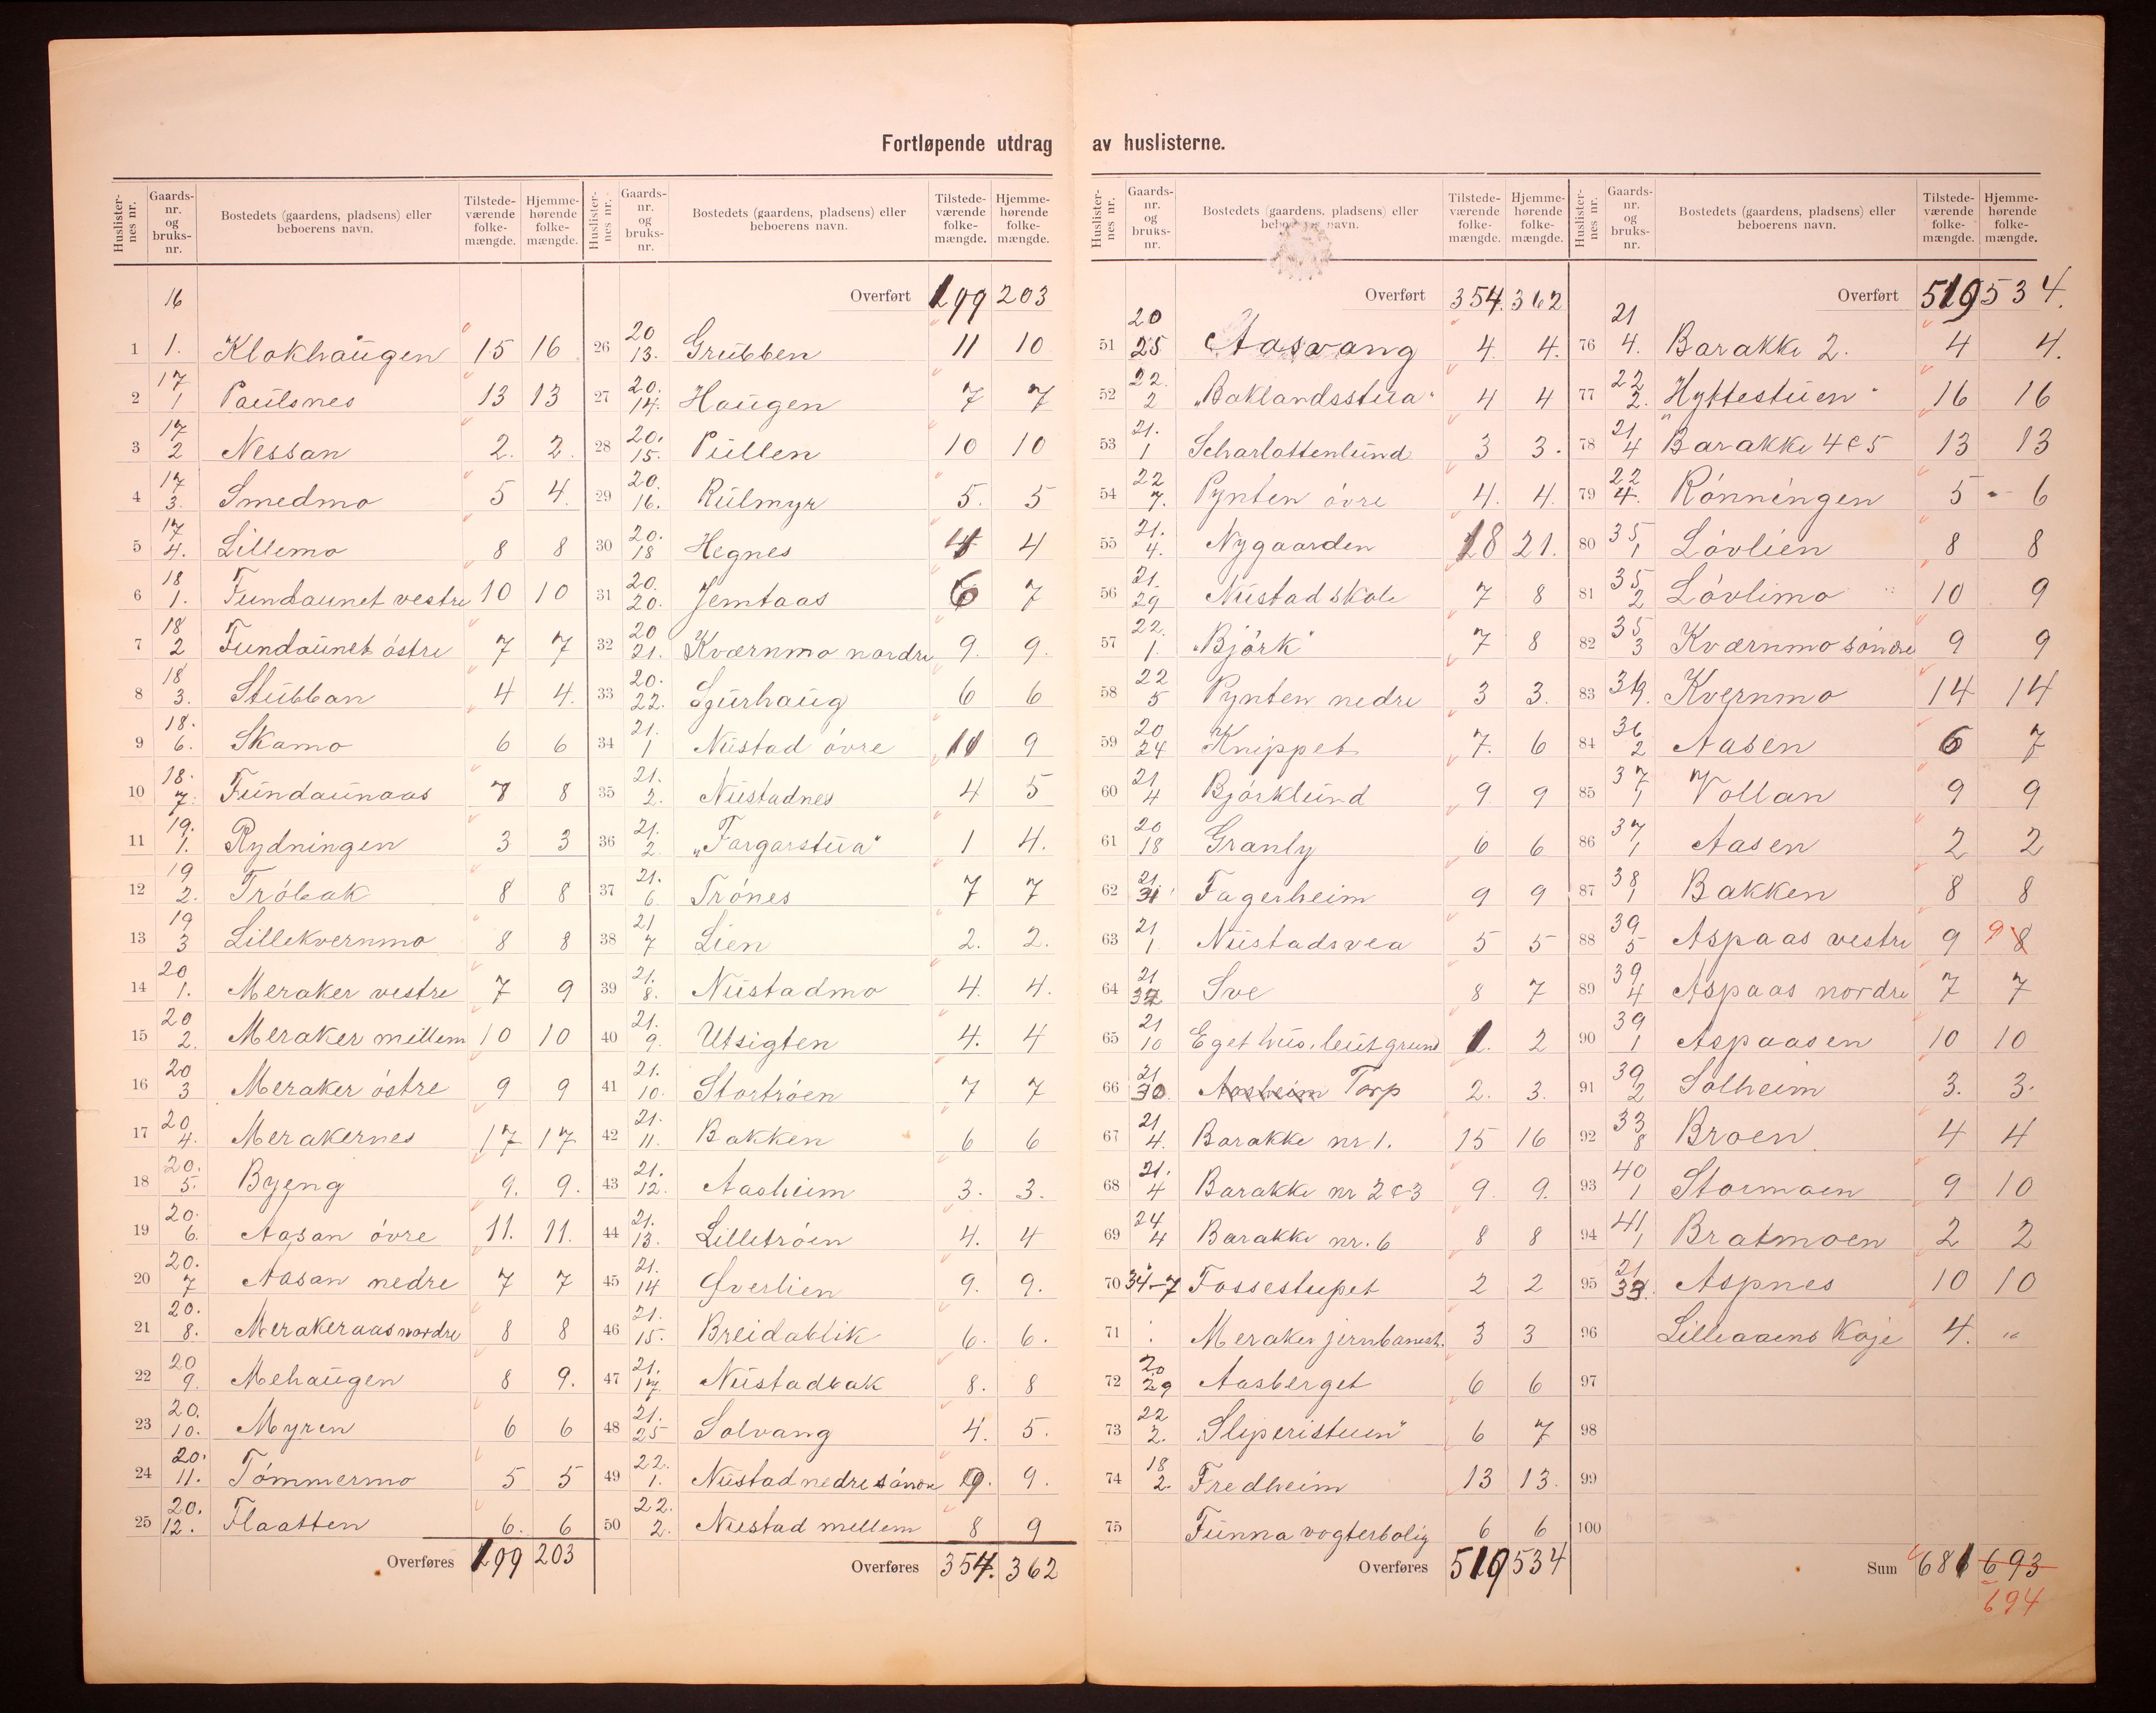 Fortløpende utdrag av huslisterne.
Huslisternes nr. Gaards-nr. og bruks-nr. Bostedets (gaardens, pladsens) eller beboerens navn. Tilstedeværende folkemængde. Hjemmehørende folkemængde.
16
1 1. Klokhaugen 15 16
2 17 1 Paulsnes 13 13
3 17 2 Nessan 2. 2.
4 17 3. Smedmo 5 4.
5 17 4. Lillemo 8 8
6 18 1. Fundaunet vestre 10 10
7 18 2 Fundaunet östre 7 7
8 18 3. Stubban 4 4.
9 18. 6. Skamo 6 6
10 18. 7. Fundaunaas 7 8
11 19. 1. Rydningen 3 3
12 19 2. Tröbak 8 8
13 19 3 Lillekvernmo 8 8
14 20 1. Meraker vestre 7 9
15 20 2. Meraker mellem 10 10
16 20 3 Meraker östre 9 9
17 20 4. Merakernes 17 17
18 20. 5. Byeng 9. 9.
19 20. 6. Aasan övre 11. 11.
20 20. 7 Aasan nedre 7 7
21 20. 8. Merakeraas nordre 8 8
22 20 9. Mehaugen 8 9.
23 20. 10. Myren 6 6
24 20. 11. Tömmermo 5 5
25 20. 12. Flaatten 6. 6
Overføres 199 203
Huslisternes nr. Gaards-nr. og bruks-nr. Bostedets (gaardens, pladsens) eller beboerens navn. Tilstedeværende folkemængde. Hjemmehørende folkemængde.
Overført 199 203
26 20 13. Grubben 11 10
27 20. 14. Haugen 7 7
28 20. 15. Püllen 10 10
29 20. 16. Kulmyr 5. 5
30 20. 18 Hegnes 4 4
31 20. 20. Jemtaas 6 7
32 20 21. Kværnmo nordre 9. 9.
33 20. 22. Sjurhaug 6 6
34 21. 1 Nustad övre 11 9
35 21. 2. Nustadnes 4 5
36 21. 2 „Fargarstua" 1 4.
37 21. 6 Trönes 7 7
38 21 7 Lien 2. 2.
39 21. 8. Nustadmo 4. 4.
40 21. 9. Utsigten 4. 4
41 21. 10. Stortröen 7 7
42 21. 11. Bakken 6 6
43 21. 12. Aasheim 3. 3.
44 21. 13. Lilletröen 4. 4
45 21. 14 Øverlien 9. 9.
46 21. 15. Breidablik 6. 6.
47 21. 17. Nustadbak 8. 8
48 21. 25 Solvang 4. 5.
49 22. 1. Nustad nedre söndre 9. 9.
50 22. 2. Nustad mellem 8 9
Overføres 354. 362
Huslisternes nr. Gaards-nr. og bruks-nr. Bostedets (gaardens, pladsens) eller beboerens navn. Tilstedeværende folkemængde. Hjemmehørende folkemængde.
Overført 354. 362
51 20 25 Aasvang 4. 4.
52 22. 2 „Baklandsstua" 4 4
53 21. 1 Scharlottenlund 3 3.
54 22 7. Pynten övre 4. 4.
55 21. 4. Nygaarden 18 21.
56 21. 29 Nustad skole 7 8
57 22. 1. „Björk" 7 8
58 22 5 Pynten nedre 3 3.
59 20 24 Knippet 7. 6
60 21 4 Björklund 9 9
61 20 18 Granly 6 6
62 21 31 Fagerheim 9 9
63 21 1. Nustadsvea 5 5
64 21 32 Sve 8 7
65 21 10 Eget hus, leiet grund 1. 2
66 21 30. Aasheim Torp 2. 3.
67 21 4. Barakke nr 1. 15 16
68 21. 4 Barakke nr 2 & 3 9 9.
69 24 4 Barakke nr. 6 8 8
70 34-7 Fossestupet 2 2
71 Meraker jernbanest. 3 3
72 20 29 Aasberget 6 6
73 22 2. „Sliperistuen" 6 7
74 18 2. Fredheim 13 13.
75 Funna vogterbolig 6 6
Overføres 519 534
Huslisternes nr. Gaards-nr. og bruks-nr. Bostedets (gaardens, pladsens) eller beboerens navn. Tilstedeværende folkemængde. Hjemmehørende folkemængde.
Overført 519 534.
76 21 4. Barakke 2. 4 4.
77 22 2. „Hyttestuen" 16 16
78 21 4 Barakke 4 & 5 13 13
79 22 4. Rönningen 5 6
80 35 1 Lövlien 8 8
81 35 2 Lövlimo 10 9
82 35 3 Kværnmo söndre 9 9
83 Kvernmo 14 14
84 36 2 Aasen 6 7
85 37 1 Vollan 9 9
86 37 1 Aasen 2 2
87 38 1 Bakken 8 8
88 39 5 Aspaas vestre 9 9 8
89 39 4 Aspaas nordre 7 7
90 39 1 Aspaasen 10 10
91 39 2 Solheim 3. 3.
92 33 8 Broen 4 4
93 40 1 Stormoen 9 10
94 41 1 Bratmoen 2 2
95 21 33. Aspnes 10 10
96 Lilleaaens Koje 4. "
97
98
99
100
Sum 681 693
694